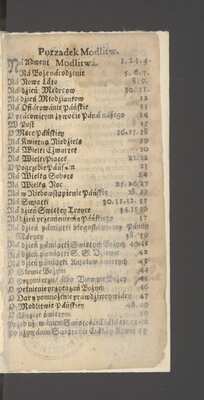 Porządek Modlitw.
Na Adwent Modlitwa. 1. 2. 3. 4.
Na Boże narodzenie 5. 6. 7.
Na Nowe Láto 8. 9.
Na dzień Medrcow 10. 11.
Na dzień Młodziankow 12
Na Ofiárowánie Páńskie 13
O prácowitym żywocie Páná nászego 14
W Post 15
O Mece Páńskiey 16. 17. 18
Na Kwietną Niedzielę 19
Na Wielki Czwartek 20
Na Wielki Piątek 21. 22
O Pogrzebie Páńskim 23
Na Wielką Sobotę 24
Na Wielką Noc 25. 26. 27
Na w Niebowstąpienie Páńskie 28. 29
Na Swiątki 30. 31. 32. 33
Na dzień Swiętey Troyce 34. 35
Na dzień przemienienia Páńskiego 37
Na dzień pámiątki błogosłáwioney Pánny
Máryey 38. 39
Na dzień pámiątki Swiętych Bożych 40. 41
Na dzień pámiątki S. S. 42
Na dzień pámiątki Anyołow 43
O Słowie Bożym 44
O 45
O pełnienie przykazań Bożych 46
O Dáry pomnożenie prawdziwey wiáry 47
O Modlitwie Páńskiey 48. 49
O Krzcie świętym 50